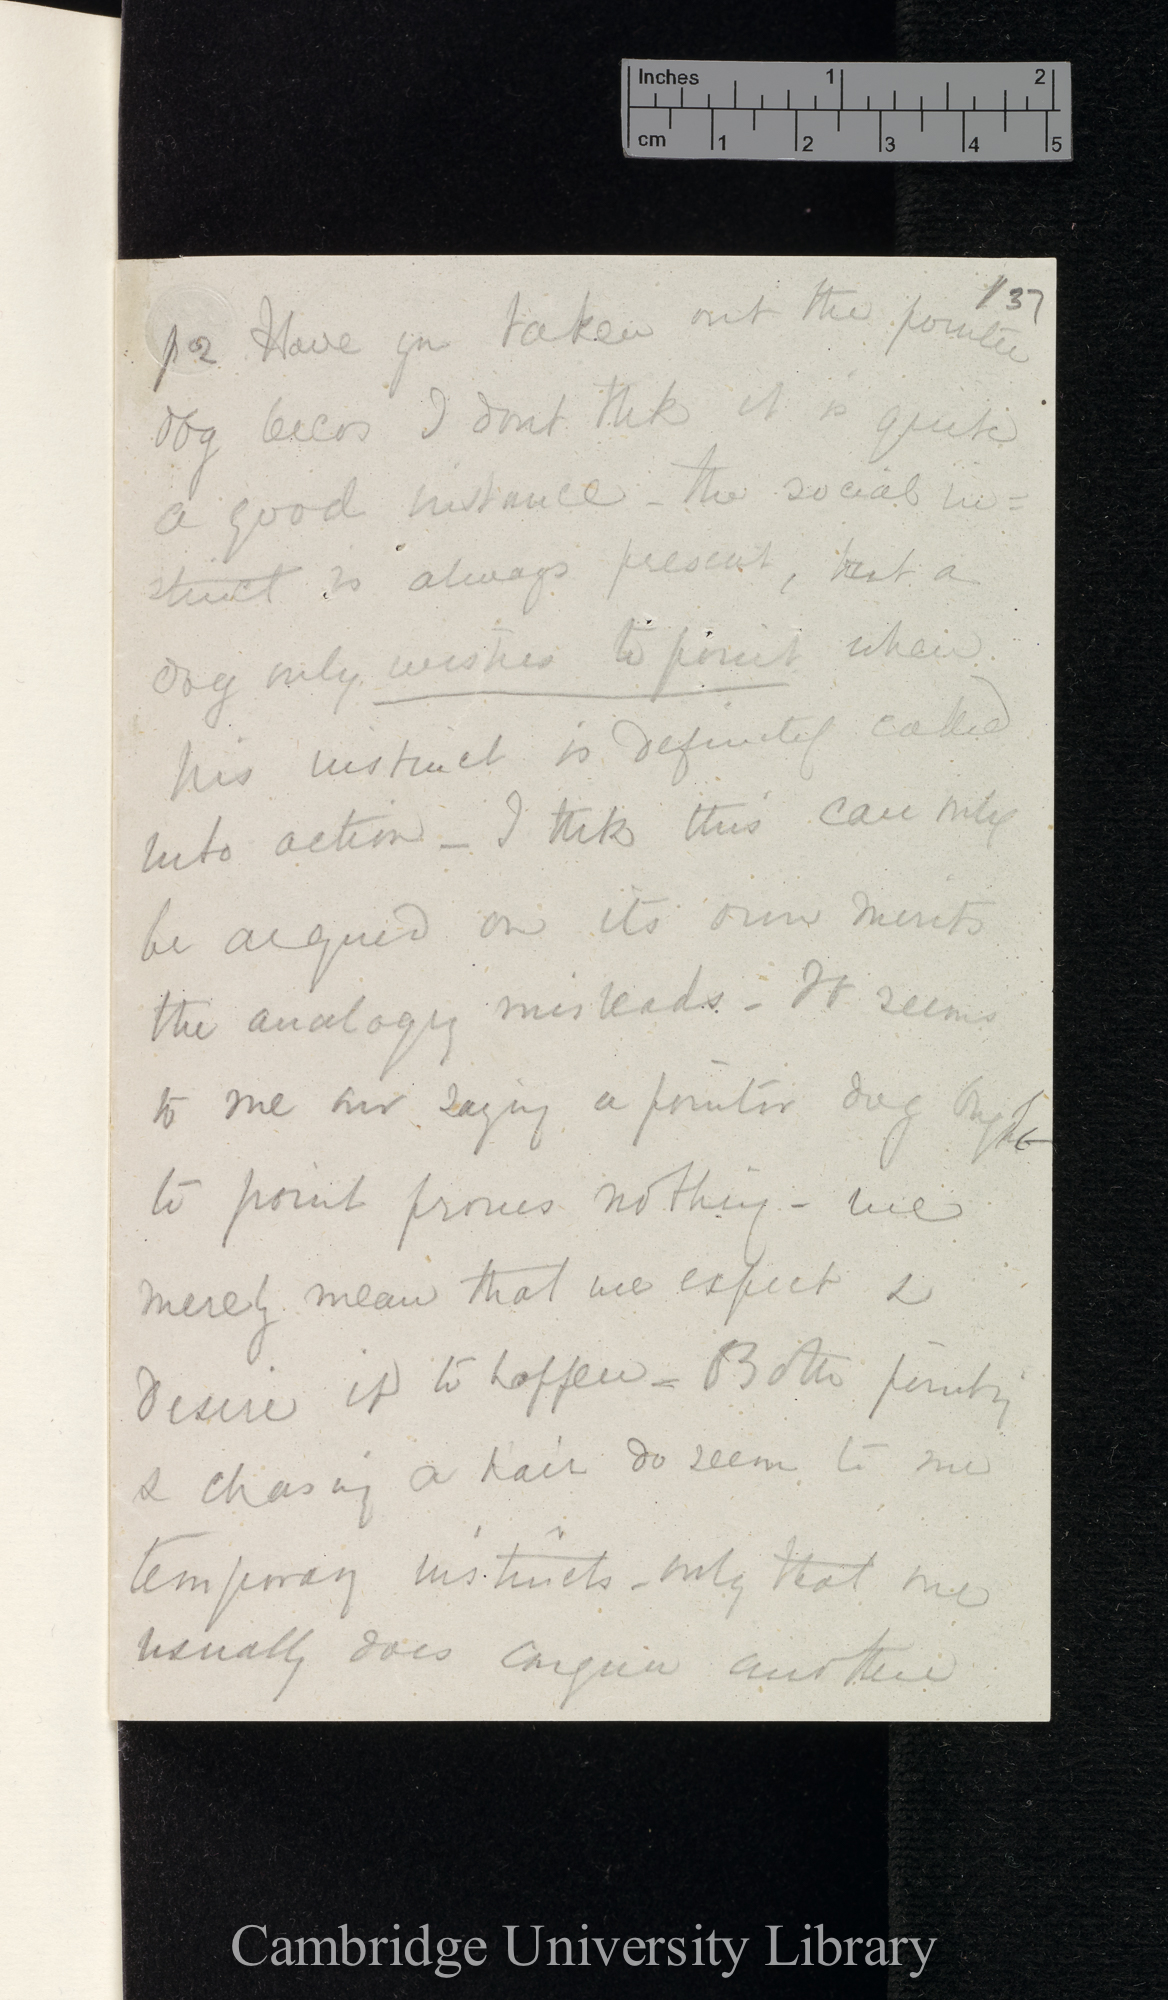 Inches 1 2
cm 1 2 3 4 5
137
p 2 Have you taken out the pointer
dog becos I dont thk it is quite
a good instance - the social in=
stinct is always present, but a
dog only wishes to point when
his instinct is definitely called
into action - I thk this can only
be argued on its own merits
the analogy misleads - It seems
to me our saying a pointer dog ought
to point proves nothing - we
merely mean that we expect &
desire it to happen - Both pointing
& chasing a hair do seem to me
temporary instincts - only that one
usually does conquer another
Cambridge University Library